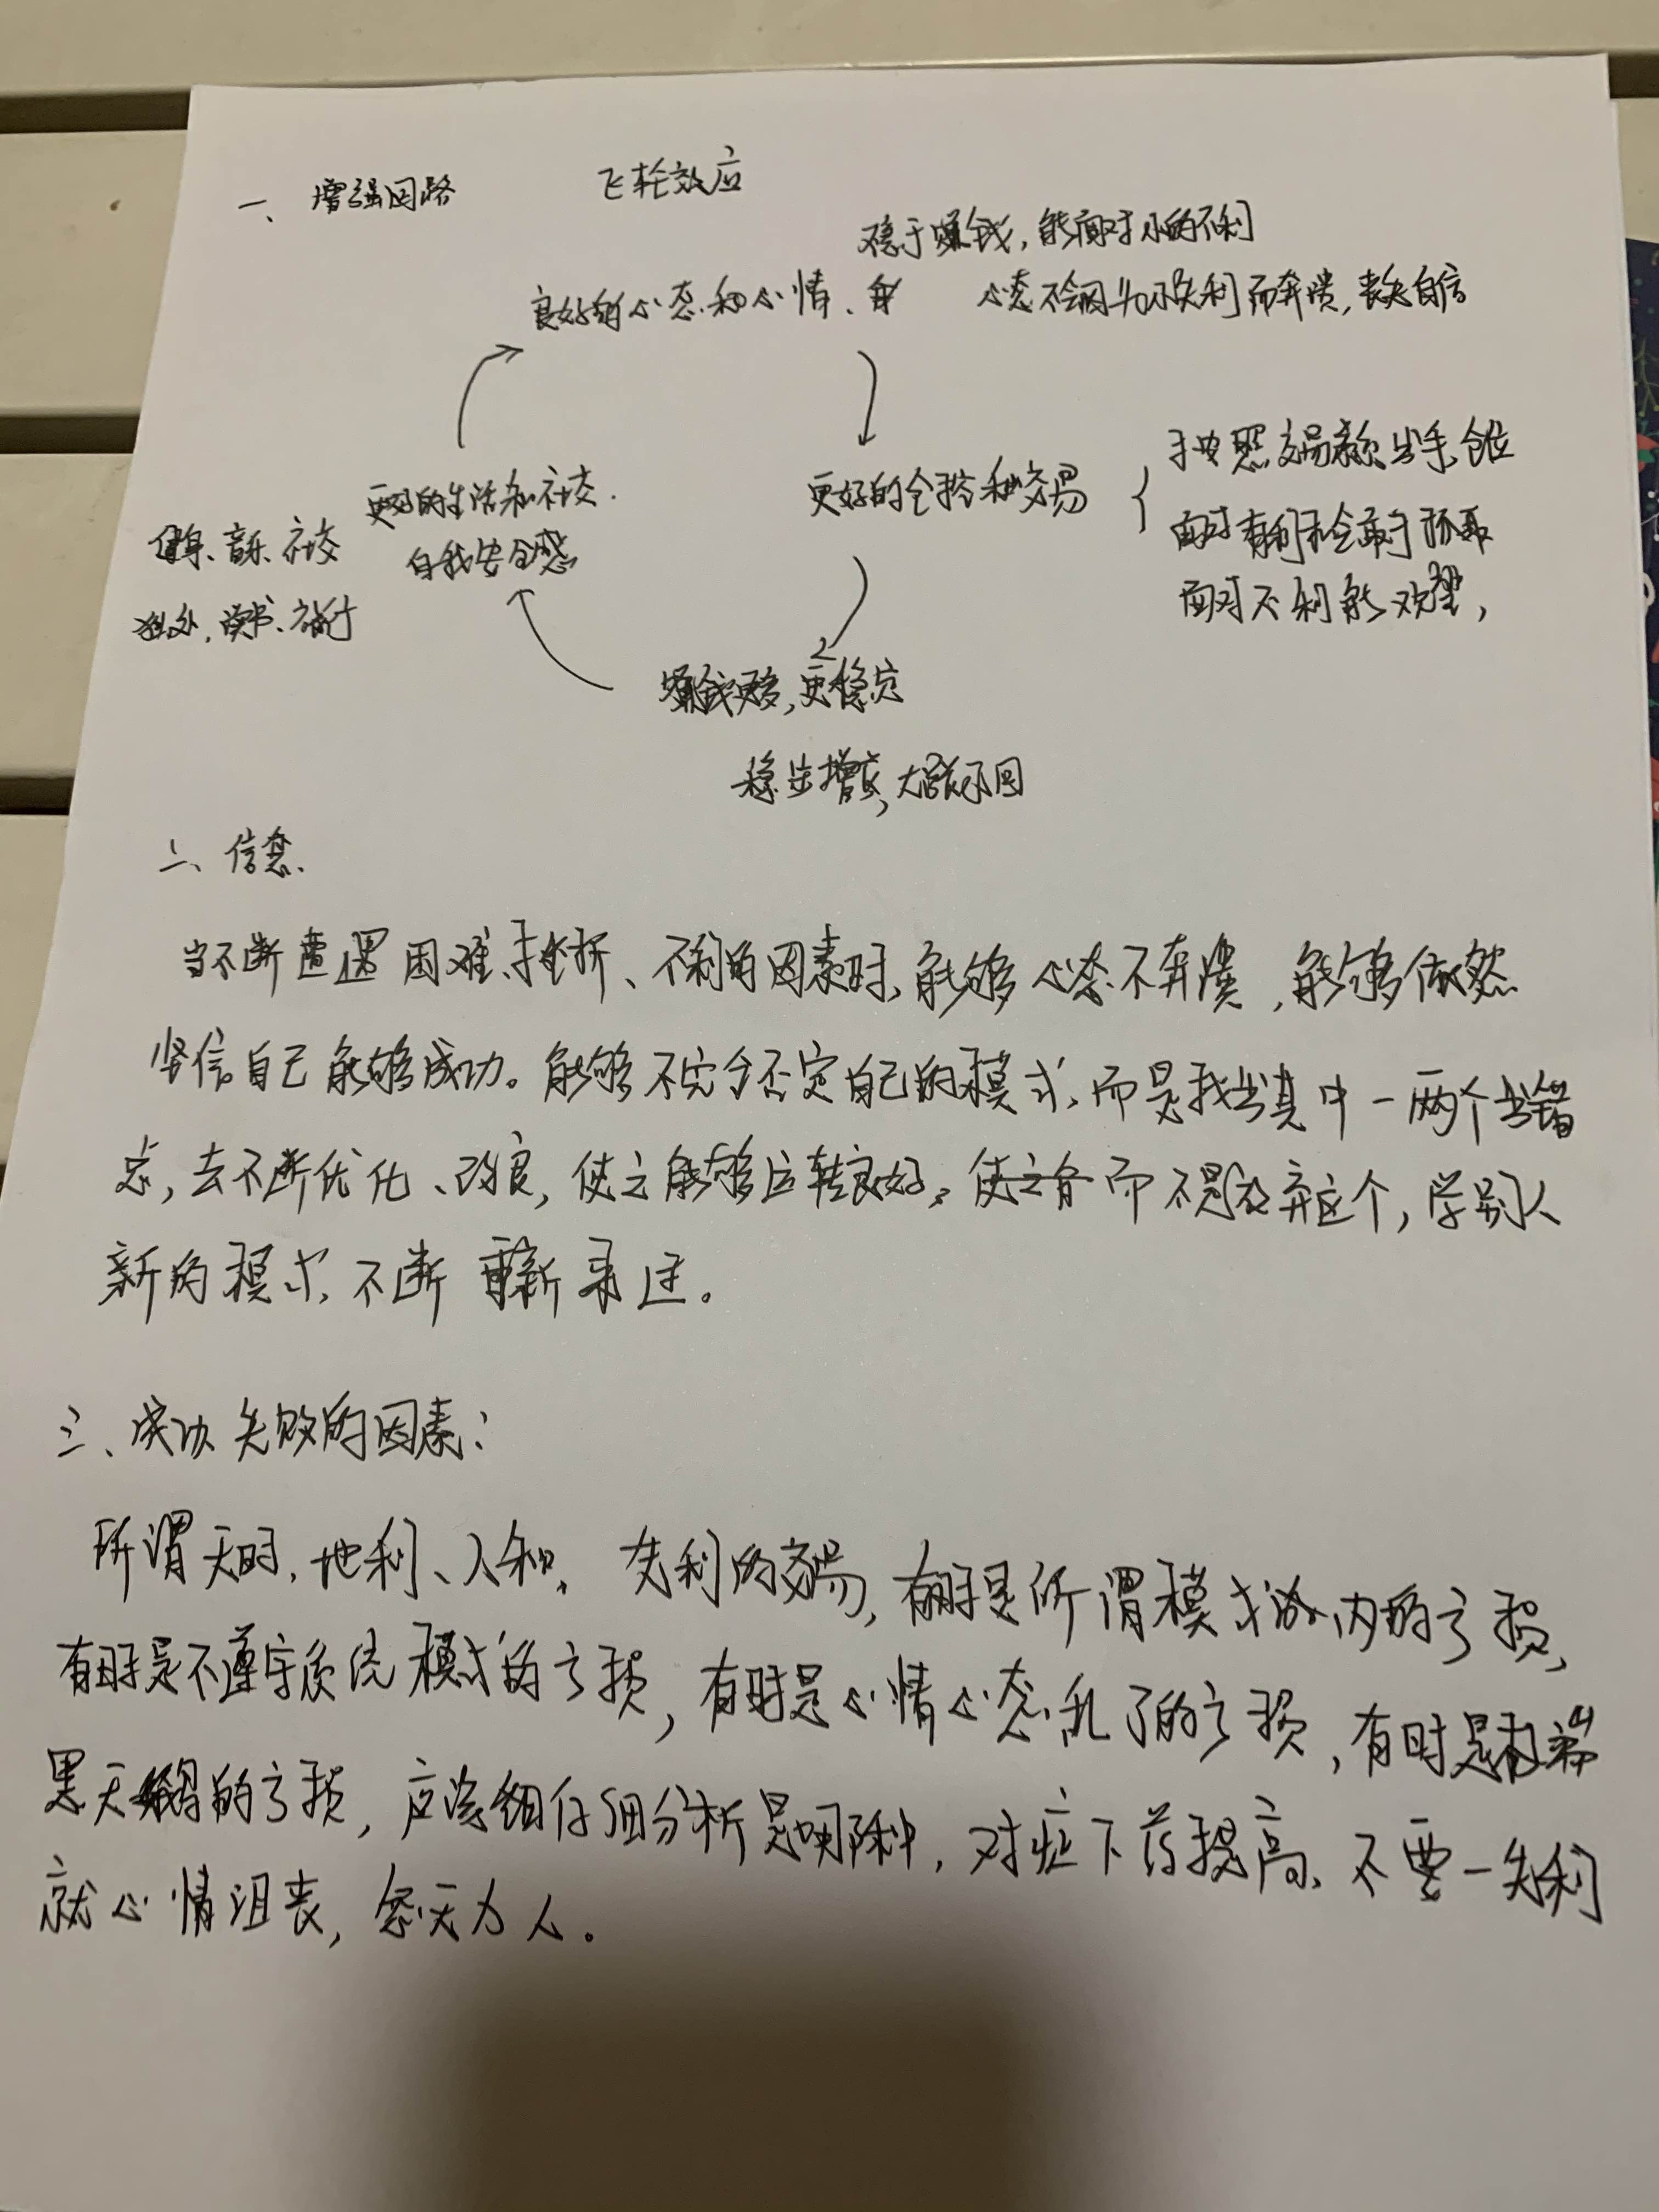 一、增强回路 飞轮效应
稳于赚钱，能面对小的不利
良好的心态和心情、 心态不会因为小失利而奔溃，丧失自信
更好的生活和社交.
自我安全感
健身、音乐、社交
独处，读书、旅行
更好的 和交易
按照交易系统出手、仓位
面对有利机会敢于抓取
面对不利能观望，
赚钱更多，更稳定
稳步增长，大的回
二、信念.
当不断遭遇困难、挫折、不利的因素时，能够心态不奔溃，能够依然
坚信自己能够成功。能够不完全否定自己的模式，而是找出其中一两个出错
点，去不断优化、改良，使之能够运转良好。 而不是放弃这个，学别人
新的模式，不断重新 。
三、成功失败的因素：
所谓天时，地利、人和， 失利的交易，有时是所谓模式 内的亏损，
有时是不遵守系统模式的亏损，有时是心情心态乱了的亏损，有时是极端
黑天鹅的亏损，应该 仔细分析是哪一种，对症下药提高、不要一失利
就心情沮丧，怨天尤人。